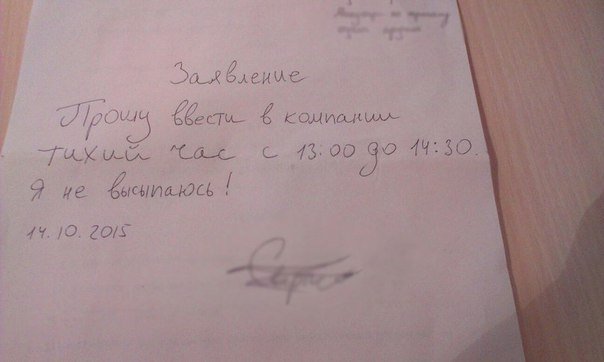 Заявление
Прошу ввести в компании
тихий час с 13:00 до 14:30.
Я не высыпаюсь!
14.10.2015